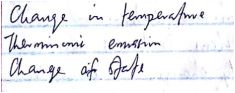 Change in temperature
Thermionic emission
Change of state